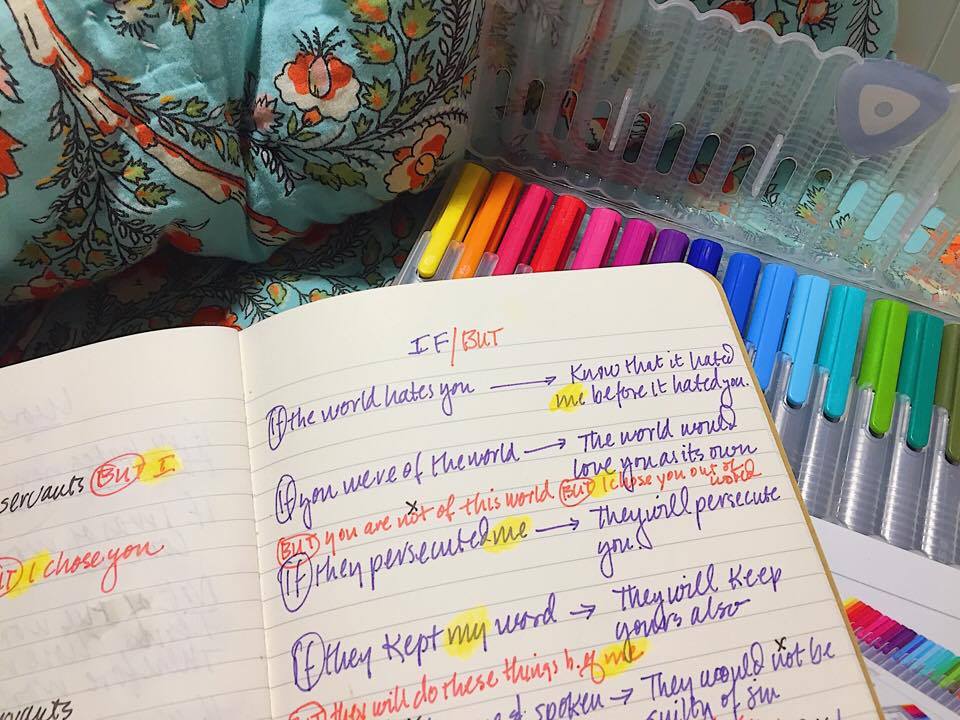 servants BUT I
I chose you
IF/BUT
If the world hates you → Know that it hated
me before it hated you.
If you were of the world → The world would
love you as its own
BUT you are not of this world BUT I chose you out of
world
If they persecuted me → They will persecute
you.
If they kept my word → They will keep
yours also
they will do these things b.c. of me
spoken → They would not be
guilty of sin